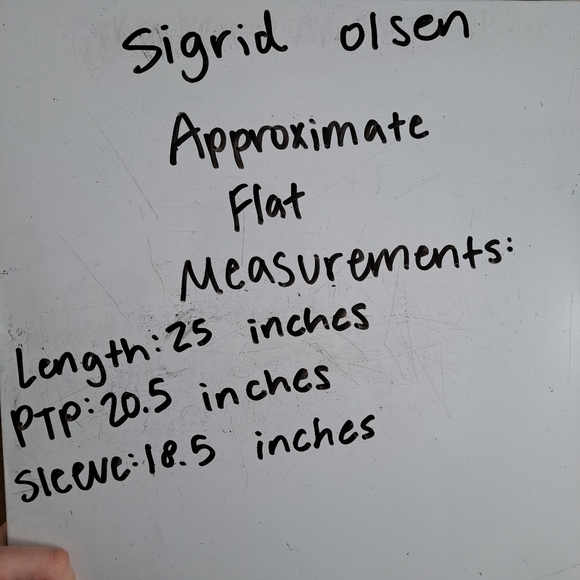 Sigrid Olsen
Approximate
Flat
Measurements:
Length: 25 inches
PTP: 20.5 inches
Sleeve: 18.5 inches